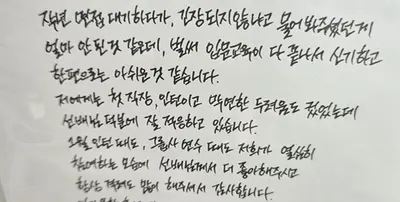 작년 면접 대기하다가, 긴장되지 않냐고 물어봐주셨던게
얼마 안 된 것 같은데, 벌써 입문교육이 다 끝나서 신기하고
한편으로는 아쉬운 것 같습니다.
저에게는 첫 직장, 인턴이고 막연한 두려움도 컸었는데
선배님 덕분에 잘 적응하고 있습니다.
1월 인턴 때도, 그룹사 연수 때도 저희가 열심히
참여하는 모습에 선배님께서 더 좋아해주시고
항상 격려도 많이 해주셔서 감사합니다.